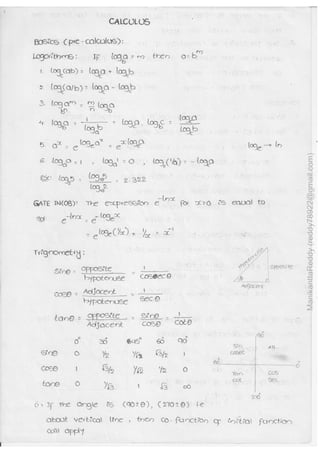 CALCULUS
Basics (pre-calculus):
Logarithms: If log_b a = m then a = b^m
1. log_b(ab) = log_b a + log_b b
2. log_b(a/b) = log_b a - log_b b
3. log_{b^n} a^m = m/n log_b a
4. log_b a = 1/log_a b = log_c a . log_b c = log_c a / log_c b
5. a^x = e^{log_e a^x} = e^{x log_e a}
log_e → ln
6. log_a a = 1 , log_a 1 = 0 , log_b(1/a) = - log_b a
Ex: log_2 5 = log 5 / log 2 = 2.322
GATE IN(08): The expression e^{-lnx} for x>0 is equal to
Sol e^{-lnx} = e^{-log_e x}
= e^{log_e(1/x)} = 1/x = x^{-1}
Trignometry:
sinθ = opposite / hypotenuse = 1 / cosecθ
opposite
Adjacent
cosθ = Adjacent / hypotenuse = 1 / secθ
tanθ = opposite / Adjacent = sinθ / cosθ = 1 / cotθ
0° 30° 45° 60° 90°
sinθ 0 1/2 1/√2 √3/2 1
cosθ 1 √3/2 1/√2 1/2 0
tanθ 0 1/√3 1 √3 ∞
90°
sin cosec
All
tan cot
cos sec
270°
If the angle is (90±θ), (270±θ) i.e
about vertical line , then co-function of initial function
will apply
ManikantaReddy (reddy78922@gmail.com)